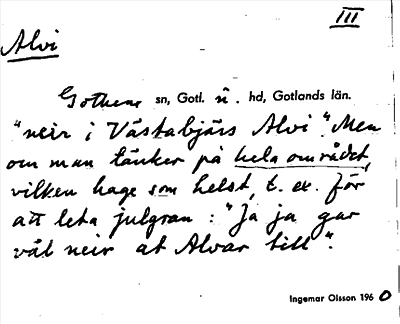 III
Alvi
Gothem sn, Gotl. n. hd, Gotlands län.
"neir i Västabjärs Alvi". Men
om man tänker på hela området,
vilken hage som helst, t. ex. för
att leta julgran: "Ja ja gar
väl neir at Alvar till".
Ingemar Olsson 1960